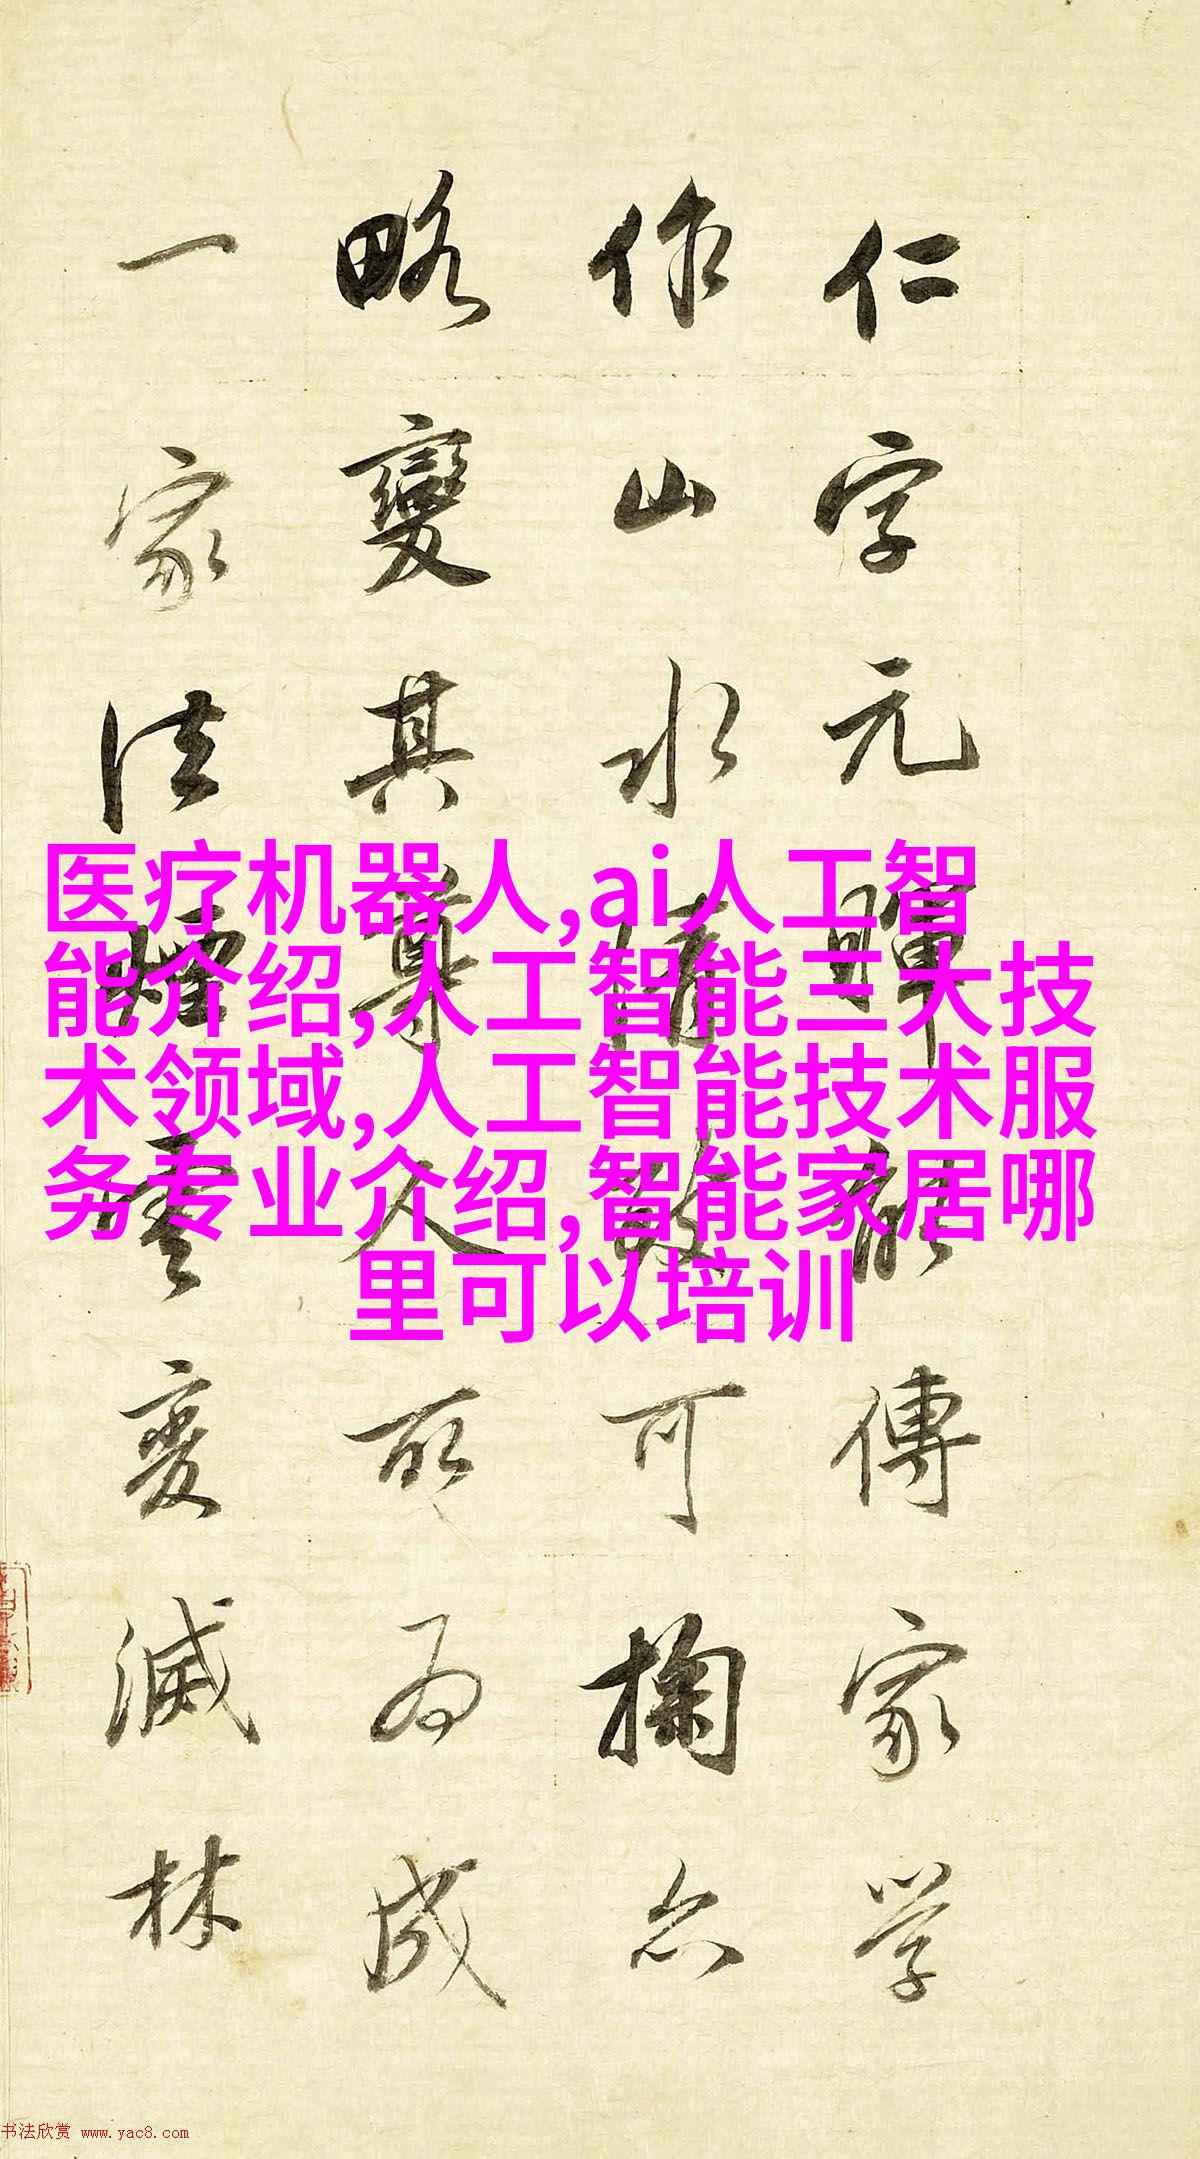 仁字元暉能傳家學
作山水清致可掬亦
略變其尊人所為成
一家法煙雲變滅林
医疗机器人,ai人工智
能介绍,人工智能三大技
术领域,人工智能技术服
务专业介绍,智能家居哪
里可以培训
书法欣赏 www.yac8.com